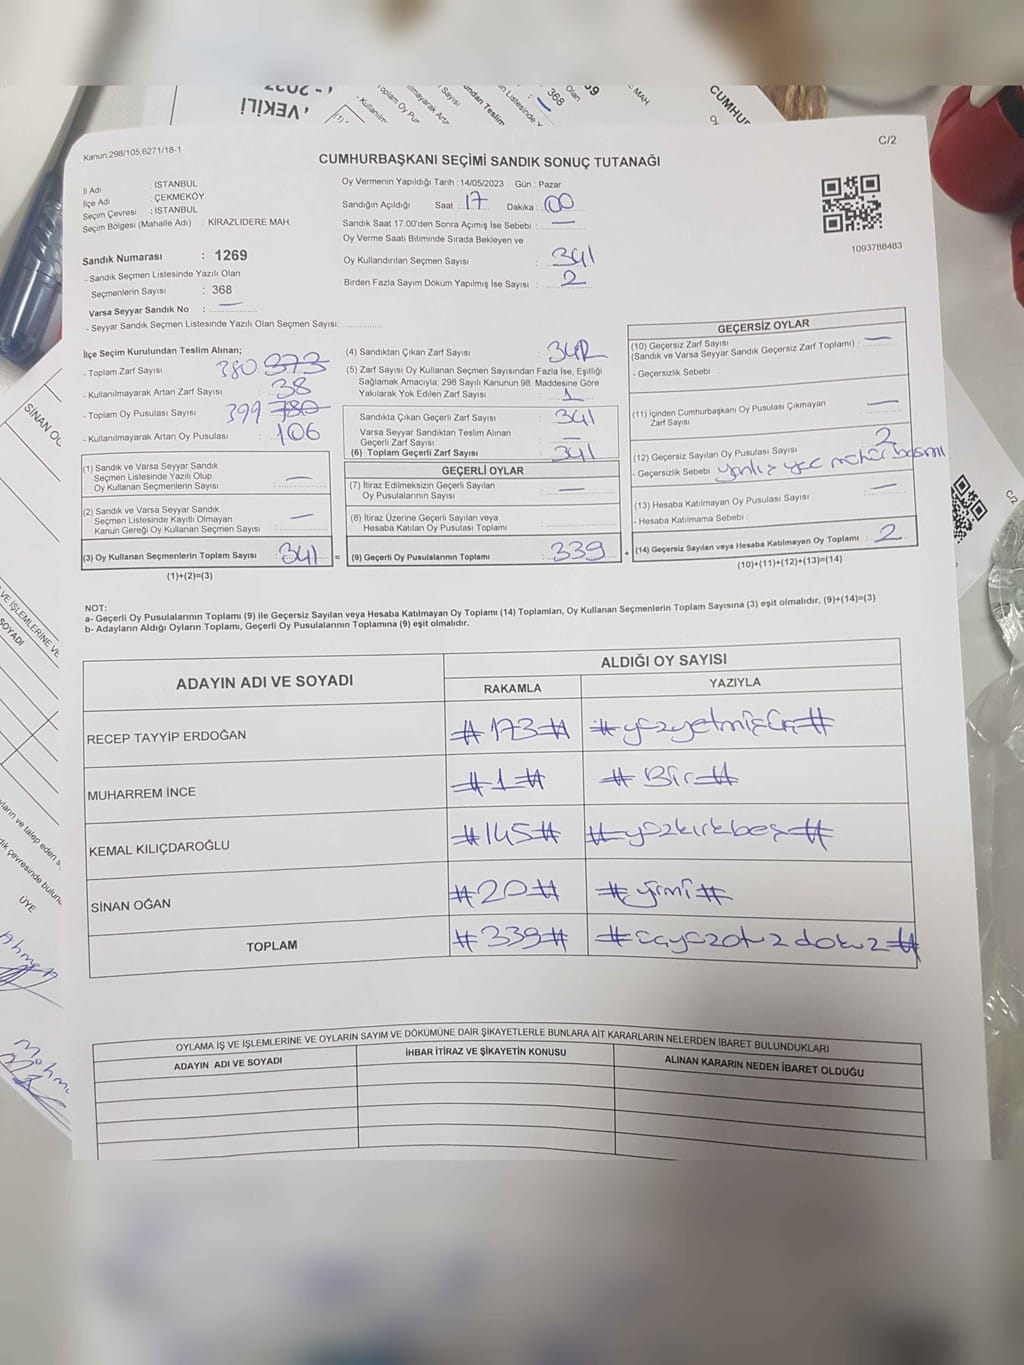 - 2023
VEKİLİ
CUMHUR
Kanun.298/105,6271/18-1
C/2
CUMHURBAŞKANI SEÇİMİ SANDIK SONUÇ TUTANAĞI
İl Adı : İSTANBUL
İlçe Adı : ÇEKMEKÖY
Seçim Çevresi : İSTANBUL
Seçim Bölgesi (Mahalle Adı) : KİRAZLIDERE MAH.
Oy Vermenin Yapıldığı Tarih : 14/05/2023 Gün : Pazar
Sandığın Açıldığı Saat : 17 Dakika : 00
Sandık Saat 17.00'den Sonra Açılmış İse Sebebi : —
Oy Verme Saati Bitiminde Sırada Bekleyen ve
Oy Kullandırılan Seçmen Sayısı : 341
Birden Fazla Sayım Döküm Yapılmış İse Sayısı : 2
1093788483
Sandık Numarası : 1269
- Sandık Seçmen Listesinde Yazılı Olan
Seçmenlerin Sayısı : 368
Varsa Seyyar Sandık No : —
- Seyyar Sandık Seçmen Listesinde Yazılı Olan Seçmen Sayısı:
İlçe Seçim Kurulundan Teslim Alınan;
- Toplam Zarf Sayısı : 380 373
- Kullanılmayarak Artan Zarf Sayısı : 38
- Toplam Oy Pusulası Sayısı : 399 780
- Kullanılmayarak Artan Oy Pusulası : 106
(1) Sandık ve Varsa Seyyar Sandık
Seçmen Listesinde Yazılı Olup
Oy Kullanan Seçmenlerin Sayısı : —
(2) Sandık ve Varsa Seyyar Sandık
Seçmen Listesinde Kayıtlı Olmayan
Kanun Gereği Oy Kullanan Seçmen Sayısı : —
(3) Oy Kullanan Seçmenlerin Toplam Sayısı : 341 =
(1)+(2)=(3)
(4) Sandıktan Çıkan Zarf Sayısı : 342
(5) Zarf Sayısı Oy Kullanan Seçmen Sayısından Fazla İse, Eşitliği
Sağlamak Amacıyla, 298 Sayılı Kanunun 98. Maddesine Göre
Yakılarak Yok Edilen Zarf Sayısı : 1
Sandıkta Çıkan Geçerli Zarf Sayısı : 341
Varsa Seyyar Sandıktan Teslim Alınan
Geçerli Zarf Sayısı : —
(6) Toplam Geçerli Zarf Sayısı : 341
GEÇERLİ OYLAR
(7) İtiraz Edilmeksizin Geçerli Sayılan
Oy Pusulalarının Sayısı : —
(8) İtiraz Üzerine Geçerli Sayılan veya
Hesaba Katılan Oy Pusulası Toplamı :
(9) Geçerli Oy Pusulalarının Toplamı : 339 +
GEÇERSİZ OYLAR
(10) Geçersiz Zarf Sayısı
(Sandık ve Varsa Seyyar Sandık Geçersiz Zarf Toplamı) : —
- Geçersizlik Sebebi :
(11) İçinden Cumhurbaşkanı Oy Pusulası Çıkmayan
Zarf Sayısı : —
(12) Geçersiz Sayılan Oy Pusulası Sayısı : 2
- Geçersizlik Sebebi : yanlış yer mühür basımı
(13) Hesaba Katılmayan Oy Pusulası Sayısı : —
- Hesaba Katılmama Sebebi :
(14) Geçersiz Sayılan veya Hesaba Katılmayan Oy Toplamı : 2
(10)+(11)+(12)+(13)=(14)
NOT:
a- Geçerli Oy Pusulalarının Toplamı (9) ile Geçersiz Sayılan veya Hesaba Katılmayan Oy Toplamı (14) Toplamları, Oy Kullanan Seçmenlerin Toplam Sayısına (3) eşit olmalıdır. (9)+(14)=(3)
b- Adayların Aldığı Oyların Toplamı, Geçerli Oy Pusulalarının Toplamına (9) eşit olmalıdır.
ADAYIN ADI VE SOYADI ALDIĞI OY SAYISI
RAKAMLA YAZIYLA
RECEP TAYYİP ERDOĞAN #173# #yüzyetmişüç#
MUHARREM İNCE #1# #Bir#
KEMAL KILIÇDAROĞLU #145# #yüzkırkbeş#
SİNAN OĞAN #20# #yirmi#
TOPLAM #339# #üçyüzotuzdokuz#
OYLAMA İŞ VE İŞLEMLERİNE VE OYLARIN SAYIM VE DÖKÜMÜNE DAİR ŞİKAYETLERLE BUNLARA AİT KARARLARIN NELERDEN İBARET BULUNDUKLARI
ADAYIN ADI VE SOYADI İHBAR İTİRAZ VE ŞİKAYETİN KONUSU ALINAN KARARIN NEDEN İBARET OLDUĞU